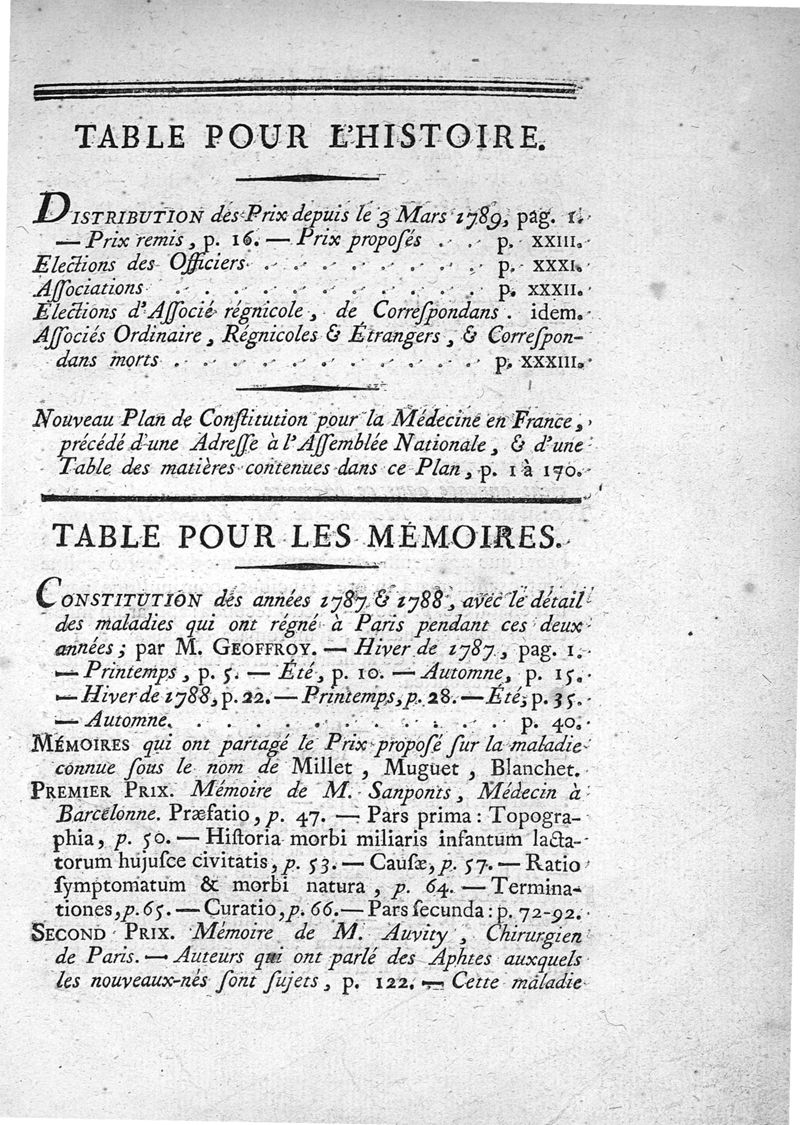 TABLE POUR L'HISTOIRE.
DISTRIBUTION des Prix depuis le 3 Mars 1789, pag. 1.
— Prix remis, p. 16. — Prix proposés . . p. XXIII.
Elections des Officiers . . . . . . . . . p. XXXI.
Associations . . . . . . . . . . . . . p. XXXII.
Elections d'Associé régnicole, de Correspondans . idem.
Associés Ordinaire, Régnicoles & Étrangers, & Correspon-
dans morts . . . . . . . . . . . . p. XXXIII.
Nouveau Plan de Constitution pour la Médecine en France,
précédé d'une Adresse à l'Assemblée Nationale, & d'une
Table des matières contenues dans ce Plan, p. 1 à 170.
TABLE POUR LES MÉMOIRES.
CONSTITUTION des années 1787 & 1788, avec le détail
des maladies qui ont régné à Paris pendant ces deux
années; par M. GEOFFROY. — Hiver de 1787, pag. 1.
— Printemps, p. 5. — Été, p. 10. — Automne, p. 15.
— Hiver de 1788, p. 22. — Printemps, p. 28. — Été, p. 35.
— Automne. . . . . . . . . . . . . p. 40.
MÉMOIRES qui ont partagé le Prix proposé sur la maladie
connue sous le nom de Millet, Muguet, Blanchet.
PREMIER PRIX. Mémoire de M. Sanponts, Médecin à
Barcelonne. Præfatio, p. 47. — Pars prima : Topogra-
phia, p. 50. — Historia morbi miliaris infantum lacta-
torum hujusce civitatis, p. 53. — Causæ, p. 57. — Ratio
symptomatum & morbi natura, p. 64. — Termina-
tiones, p. 65. — Curatio, p. 66. — Pars secunda : p. 72-92.
SECOND PRIX. Mémoire de M. Auvity, Chirurgien
de Paris. — Auteurs qui ont parlé des Aphtes auxquels
les nouveaux-nés sont sujets, p. 122. — Cette maladie